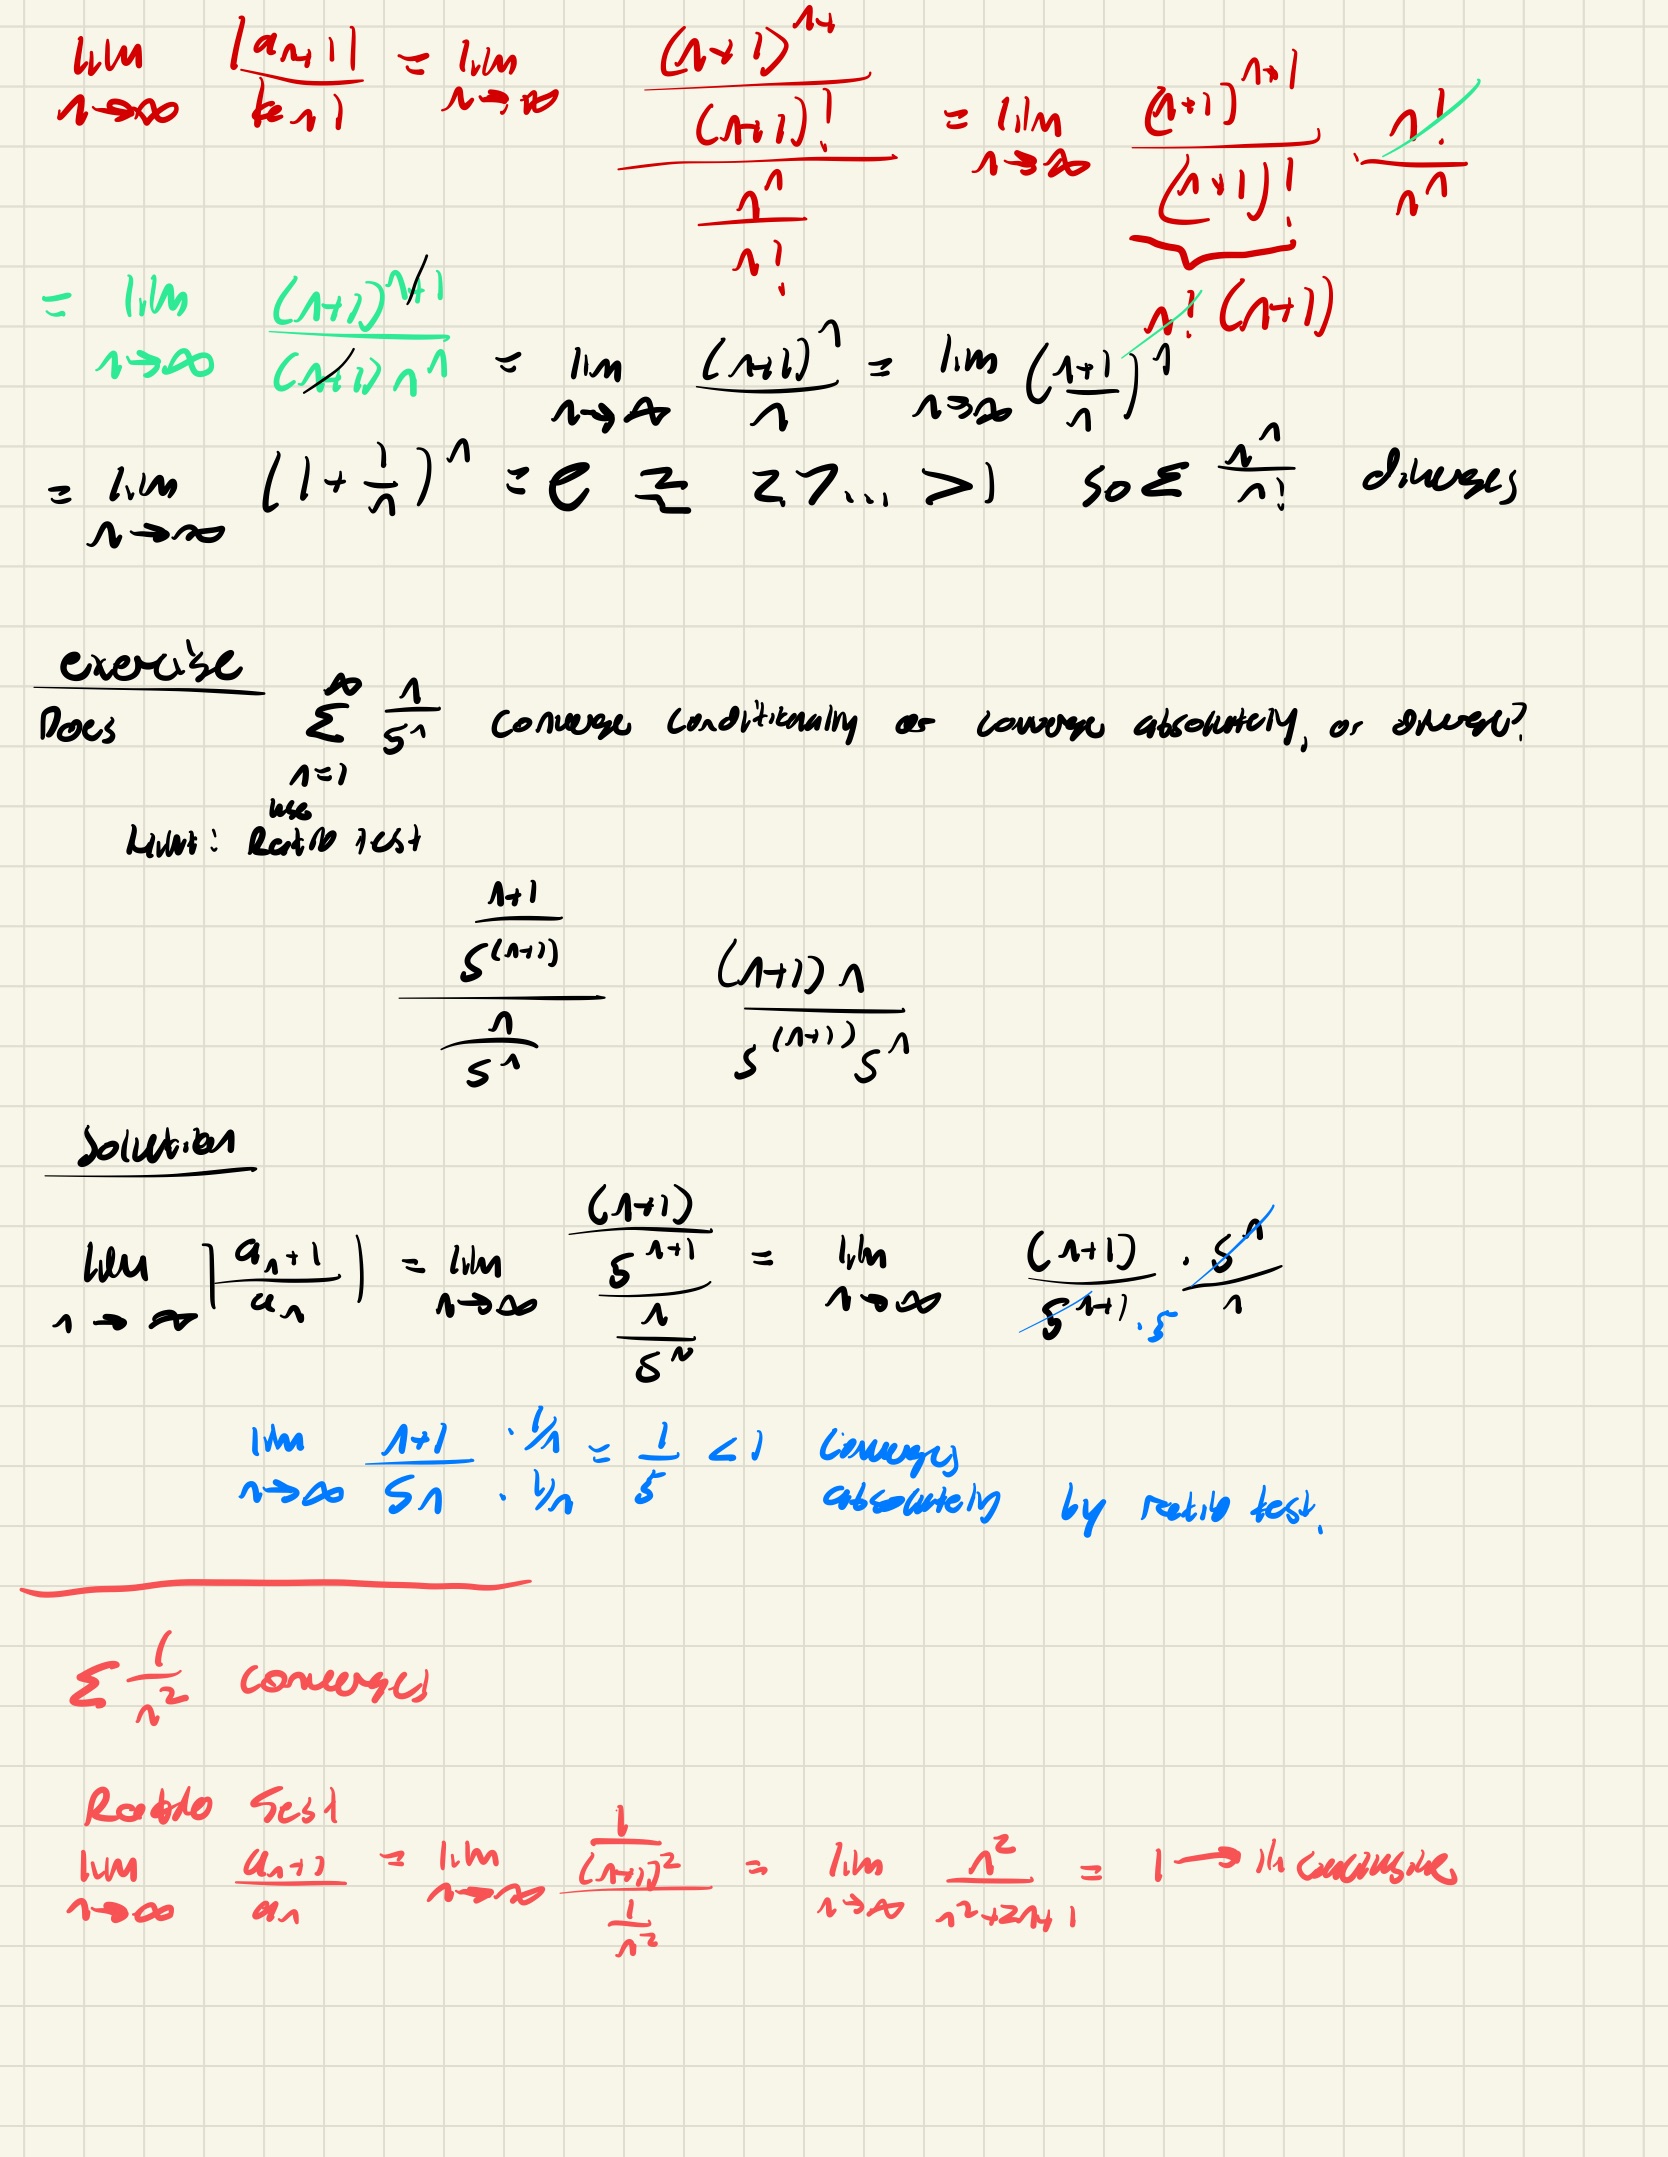 lim n→∞ |a_{n+1}| / |a_n| = lim n→∞ ((n+1)^{n+} / (n+1)!) / (n^n / n!) = lim n→∞ (n+1)^{n+1} / (n+1)! · n! / n^n
n! (n+1)
= lim n→∞ (n+1)^{n+1} / ((n+1) n^n) = lim n→∞ (n+1)^n / n = lim n→∞ ((n+1)/n)^n
= lim n→∞ (1 + 1/n)^n = e ≈ 2.7... > 1 so Σ n^n / n! diverges
exercise
Does Σ_{n=1}^∞ n / 5^n converge conditionally or converge absolutely, or diverge?
use
Hint: Ratio test
((n+1) / 5^{(n+1)}) / (n / 5^n) (n+1) n / (5^{(n+1)} 5^n)
Solution
lim n→∞ |a_{n+1} / a_n| = lim n→∞ ((n+1) / 5^{n+1}) / (n / 5^n) = lim n→∞ (n+1) / 5^{n+1} · 5 · 5^n / n
lim n→∞ (n+1) / 5n · 1/n / · 1/n = 1/5 < 1 converges
absolutely by ratio test.
Σ 1/n^2 converges
Ratio Test
lim n→∞ a_{n+1} / a_n = lim n→∞ (1 / (n+1)^2) / (1 / n^2) = lim n→∞ n^2 / (n^2+2n+1) = 1 → inconclusive